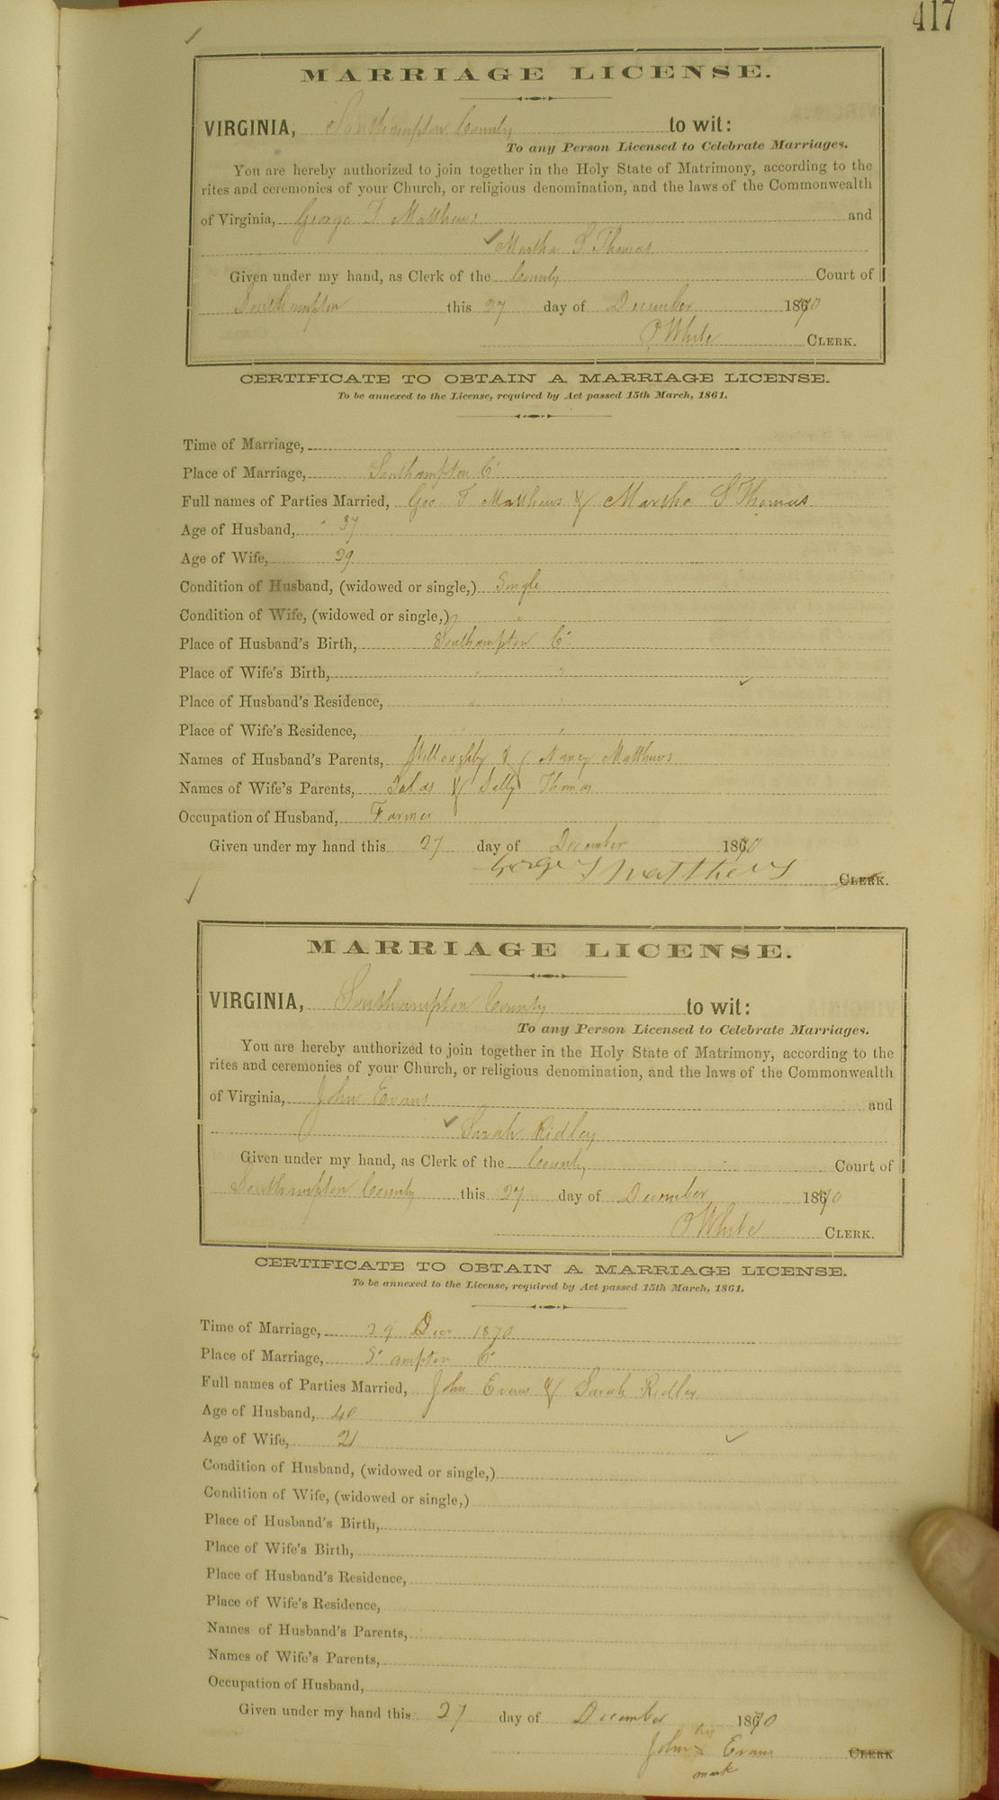 417
MARRIAGE LICENSE.
VIRGINIA, Southampton County to wit:
To any Person Licensed to Celebrate Marriages.
You are hereby authorized to join together in the Holy State of Matrimony, according to the
rites and ceremonies of your Church, or religious denomination, and the laws of the Commonwealth
of Virginia, George T Matthews and
Martha S Thomas
Given under my hand, as Clerk of the County Court of
Southampton this 27 day of December 1870
White CLERK.
CERTIFICATE TO OBTAIN A MARRIAGE LICENSE.
To be annexed to the License, required by Act passed 15th March, 1861.
Time of Marriage,
Place of Marriage, Southampton Co
Full names of Parties Married, Geo T Matthews & Martha S Thomas
Age of Husband, 37
Age of Wife, 29
Condition of Husband, (widowed or single,) Single
Condition of Wife, (widowed or single,) "
Place of Husband's Birth, Southampton Co
Place of Wife's Birth, " "
Place of Husband's Residence, " "
Place of Wife's Residence, " "
Names of Husband's Parents, Willoughby & Nancy Matthews
Names of Wife's Parents, & Sally Thomas
Occupation of Husband, Farmer
Given under my hand this 27 day of December 1870
George T Matthews CLERK.
MARRIAGE LICENSE.
VIRGINIA, Southampton County to wit:
To any Person Licensed to Celebrate Marriages.
You are hereby authorized to join together in the Holy State of Matrimony, according to the
rites and ceremonies of your Church, or religious denomination, and the laws of the Commonwealth
of Virginia, John Evans and
Sarah Ridley
Given under my hand, as Clerk of the County Court of
Southampton County this 27 day of December 1870
White CLERK.
CERTIFICATE TO OBTAIN A MARRIAGE LICENSE.
To be annexed to the License, required by Act passed 15th March, 1861.
Time of Marriage, 29 Decr 1870
Place of Marriage, S'ampton Co
Full names of Parties Married, John Evans & Sarah Ridley
Age of Husband, 40
Age of Wife, 21
Condition of Husband, (widowed or single,)
Condition of Wife, (widowed or single,)
Place of Husband's Birth,
Place of Wife's Birth,
Place of Husband's Residence,
Place of Wife's Residence,
Names of Husband's Parents,
Names of Wife's Parents,
Occupation of Husband,
Given under my hand this 27 day of December 1870
his
John x Evans CLERK
mark